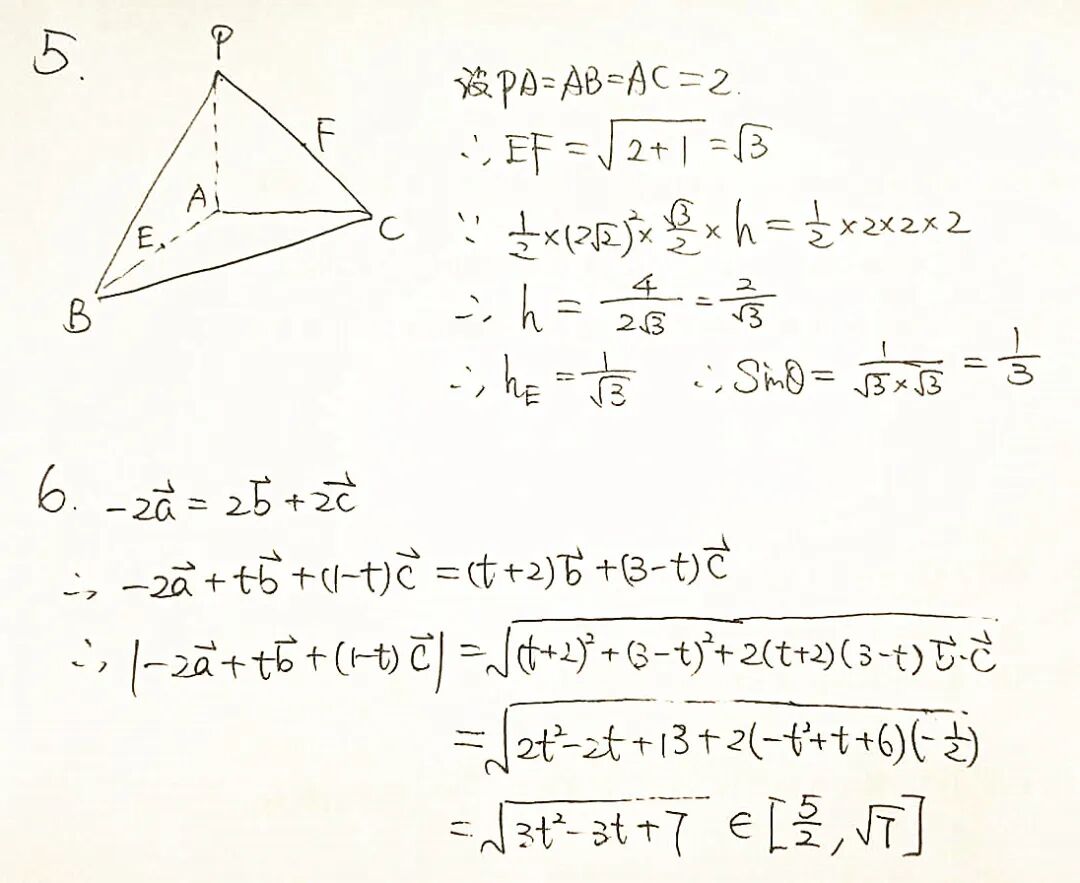 5.
P
F
A
E
C
B
设PA=AB=AC=2.
∴EF=√(2+1)=√3
∵ 1/2×(2√2)²×√3/2×h=1/2×2×2×2
∴h=4/(2√3)=2/√3
∴h_E=1/√3 ∴Sinθ=1/(√3×√3)=1/3
6. -2a⃗=2b⃗+2c⃗
∴-2a⃗+tb⃗+(1-t)c⃗=(t+2)b⃗+(3-t)c⃗
∴|-2a⃗+tb⃗+(1-t)c⃗|=√((t+2)²+(3-t)²+2(t+2)(3-t)b⃗·c⃗)
=√(2t²-2t+13+2(-t²+t+6)(-1/2))
=√(3t²-3t+7) ∈[5/2,√7]